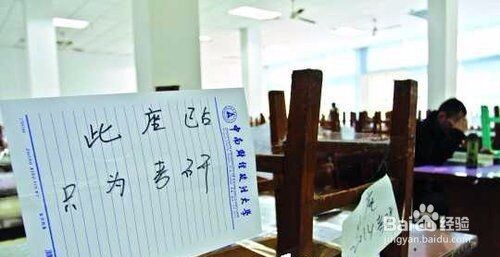 此座已占
只为考研
中南财经政法大学
2014
Baidu 经验
jingyan.baidu.com